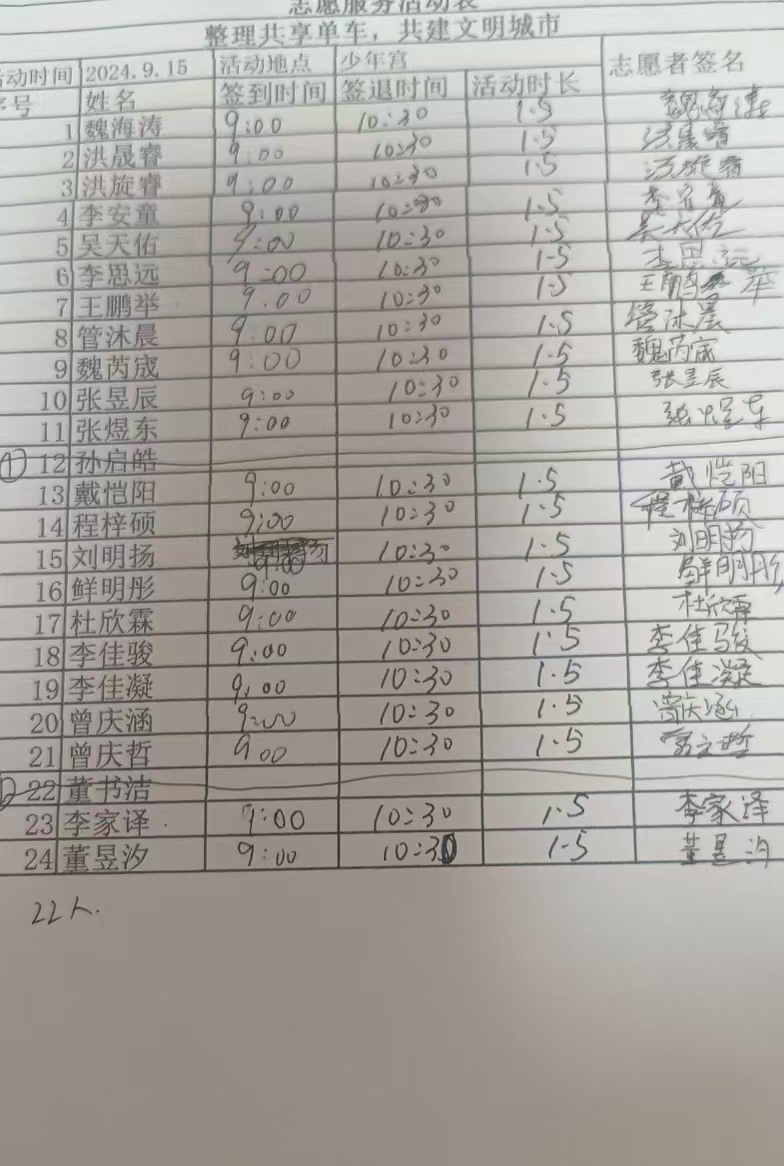 志愿服务活动表
整理共享单车，共建文明城市
活动时间 2024.9.15 活动地点 少年宫 志愿者签名
序号 姓名 签到时间 签退时间 活动时长
1 魏海涛 9:00 10:30 1.5 魏海涛
2 洪晟睿 9:00 10:30 1.5 洪晟睿
3 洪旋睿 9:00 10:30 1.5 洪旋睿
4 李安童 9:00 10:30 1.5 李安童
5 吴天佑 9:00 10:30 1.5 吴天佑
6 李思远 9:00 10:30 1.5 李思远
7 王鹏举 9.00 10:30 1.5 王鹏举
8 管沐晨 9:00 10:30 1.5 管沐晨
9 魏芮宬 9:00 10:30 1.5 魏芮宬
10 张昱辰 9:00 10:30 1.5 张昱辰
11 张煜东 9:00 10:30 1.5 张煜东
① 12 孙启皓
13 戴恺阳 9:00 10:30 1.5 戴恺阳
14 程梓硕 9:00 10:30 1.5 程梓硕
15 刘明扬 9:00 10:30 1.5 刘明扬
16 鲜明彤 9:00 10:30 1.5 鲜明彤
17 杜欣霖 9:00 10:30 1.5 杜欣霖
18 李佳骏 9:00 10:30 1.5 李佳骏
19 李佳凝 9:00 10:30 1.5 李佳凝
20 曾庆涵 9:00 10:30 1.5 曾庆涵
21 曾庆哲 9:00 10:30 1.5
② 22 董书洁
23 李家译 9:00 10:30 1.5 李家译
24 董昱汐 9:00 10:30 1.5 董昱汐
22人.